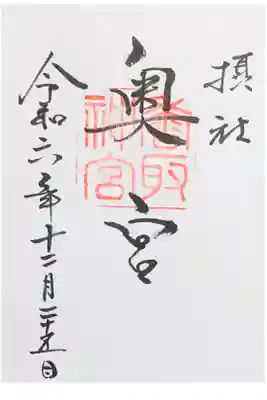 摂社
奥宮
香取
神宮
令和六年十二月二十五日